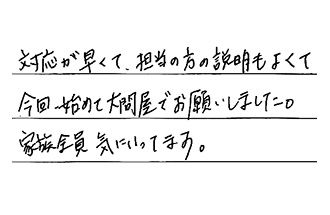 対応が早くて、担当の方の説明もよくて
今回始めて大問屋でお願いしました。
家族全員 気にいってます。